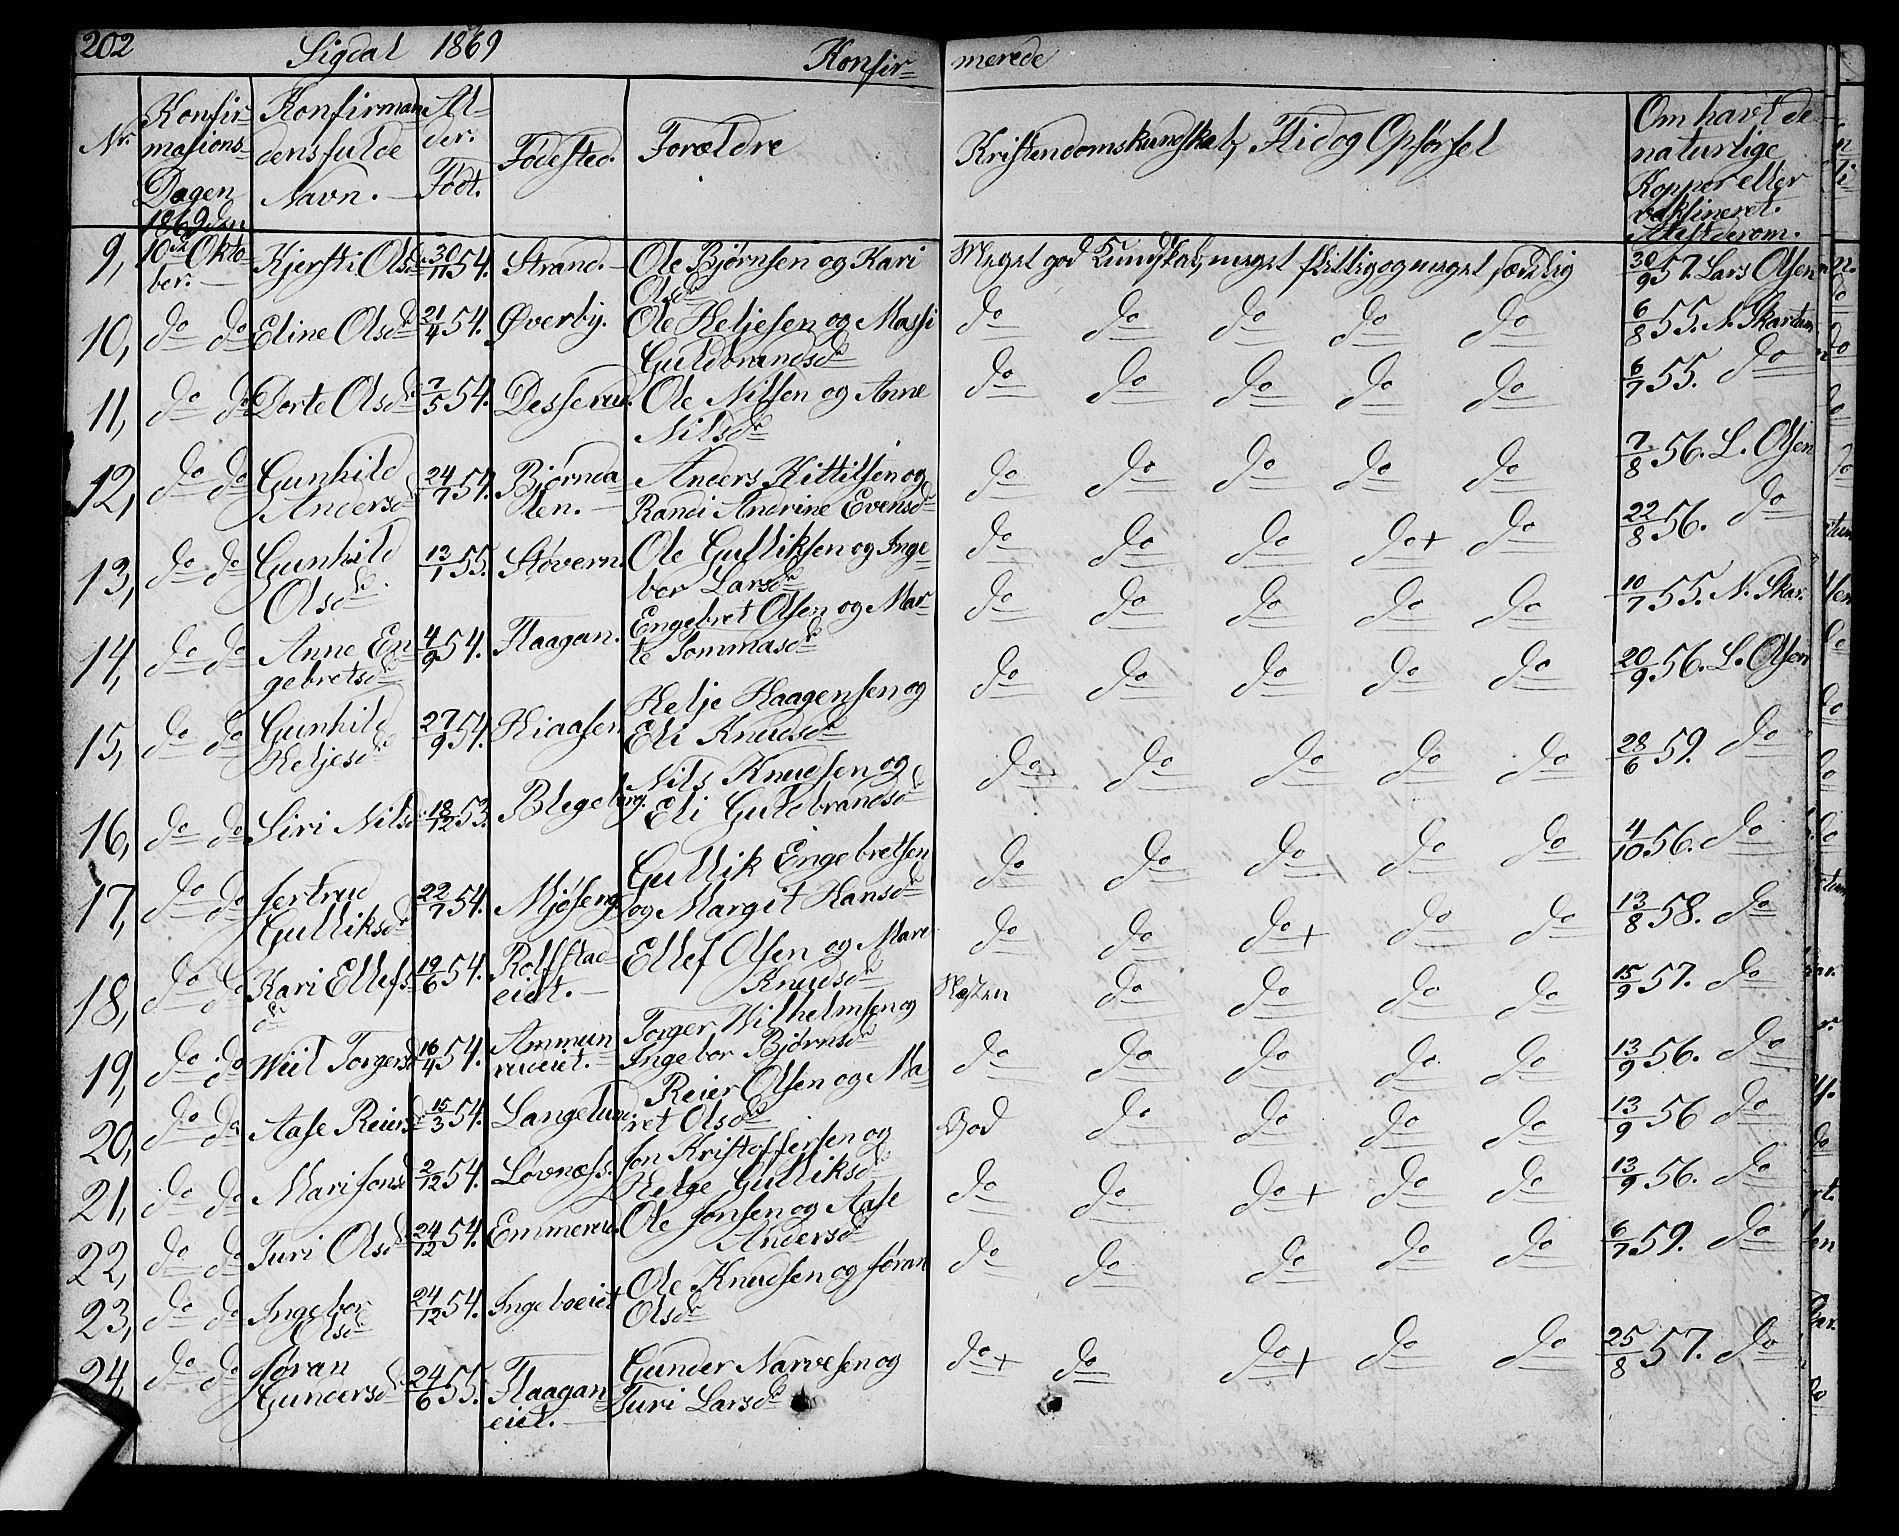 202 Sigdal 1869 Konfir- merede
Nr. Konfir- masions- Dagen 1869 den Konfirman- dens fulde Navn. Al- der. Født. Fødested. Forældre Kristendomskundskab, Flid og Opførsel Om havt de naturlige Kopper eller vaksineret. Attest derom.
9, 10de Okto- ber. Kjersti Olsdr 30/11 54. Strand. Ole Bjørnsen og Kari Olsdr Meget god Kundskab, meget flittig og meget sædelig 30/9 57. Lars Olsen
10, do do Eline Olsdr 21/4 54. Øverby. Ole Heljesen og Massi Guldbrandsdr do do do do do 6/8 55. N. Skartum
11, do do Dorte Olsdr 7/5 54. Desserud. Ole Nilsen og Anne Nilsdr do do do do do 6/7 55. do
12, do do Gunhild Andersdr 24/7 54. Bjørnda- len. Anders Kittilsen og Randi Andrine Evensdr do do do do do 7/8 56. L. Olsen
13, do do Gunhild Olsdr 13/1 55. Støvern. Ole Gulliksen og Inge- bor Larsdr do do do do+ do 22/8 56. do
14, do do Anne En- gebretsdr 4/9 54. Flaagan. Engebret Olsen og Mar- te Tommasdr do do do do do 10/7 55. N. Skar.
15, do do Gunhild Heljesdr 27/9 54. Kiaasen Helje Haagensen og Eli Knudsdr do do do do do 20/9 56. L. Olsen
16, do do Siri Nilsdr 18/12 53. Blegeberg. Nils Knudsen og Eli Guldbrandsdr do do do do do 28/6 59. do
17, do do Jertrud Gulliksdr 22/7 54. Mjøseng. Gullik Engebretsen og Margit Hansdr do do do do do 4/10 56. do
18, do do Kari Ellefs- dr 19/6 54. Rolfstad- eiet. Ellef Olsen og Mari Knudsdr do do do+ do do 13/8 58. do
19, do do Wiil Torgersdr 16/4 54. Ammun- rueiet. Torger Wilhelmsen og Ingebor Bjørnsdr Næsten do do do do 15/9 57. do
20, do do Aase Reiersdr 15/3 54. Langelud. Reier Olsen og Ma- ret Olsdr do do do do do 13/9 56. do
21, do do Mari Jonsdr 2/12 54. Løvnæss. Jon Kristoffersen og Helge Gulliksdr God do do do do 13/9 56 do
22, do do Turi Olsdr 24/12 54. Emmerud. Ole Jonsen og Aase Andersdr do do do+ do do 13/9 56. do
23, do do Ingebor Olsdr 24/12 54. Ingeboeiet Ole Knudsen og Jøran Olsdr do do do do do 6/7 59. do
24, do do Jøran Gundersdr 24/6 55. Flaagan- eiet. Gunder Narvesen og Turi Larsdr do+ do do+ do do 25/8 57. do